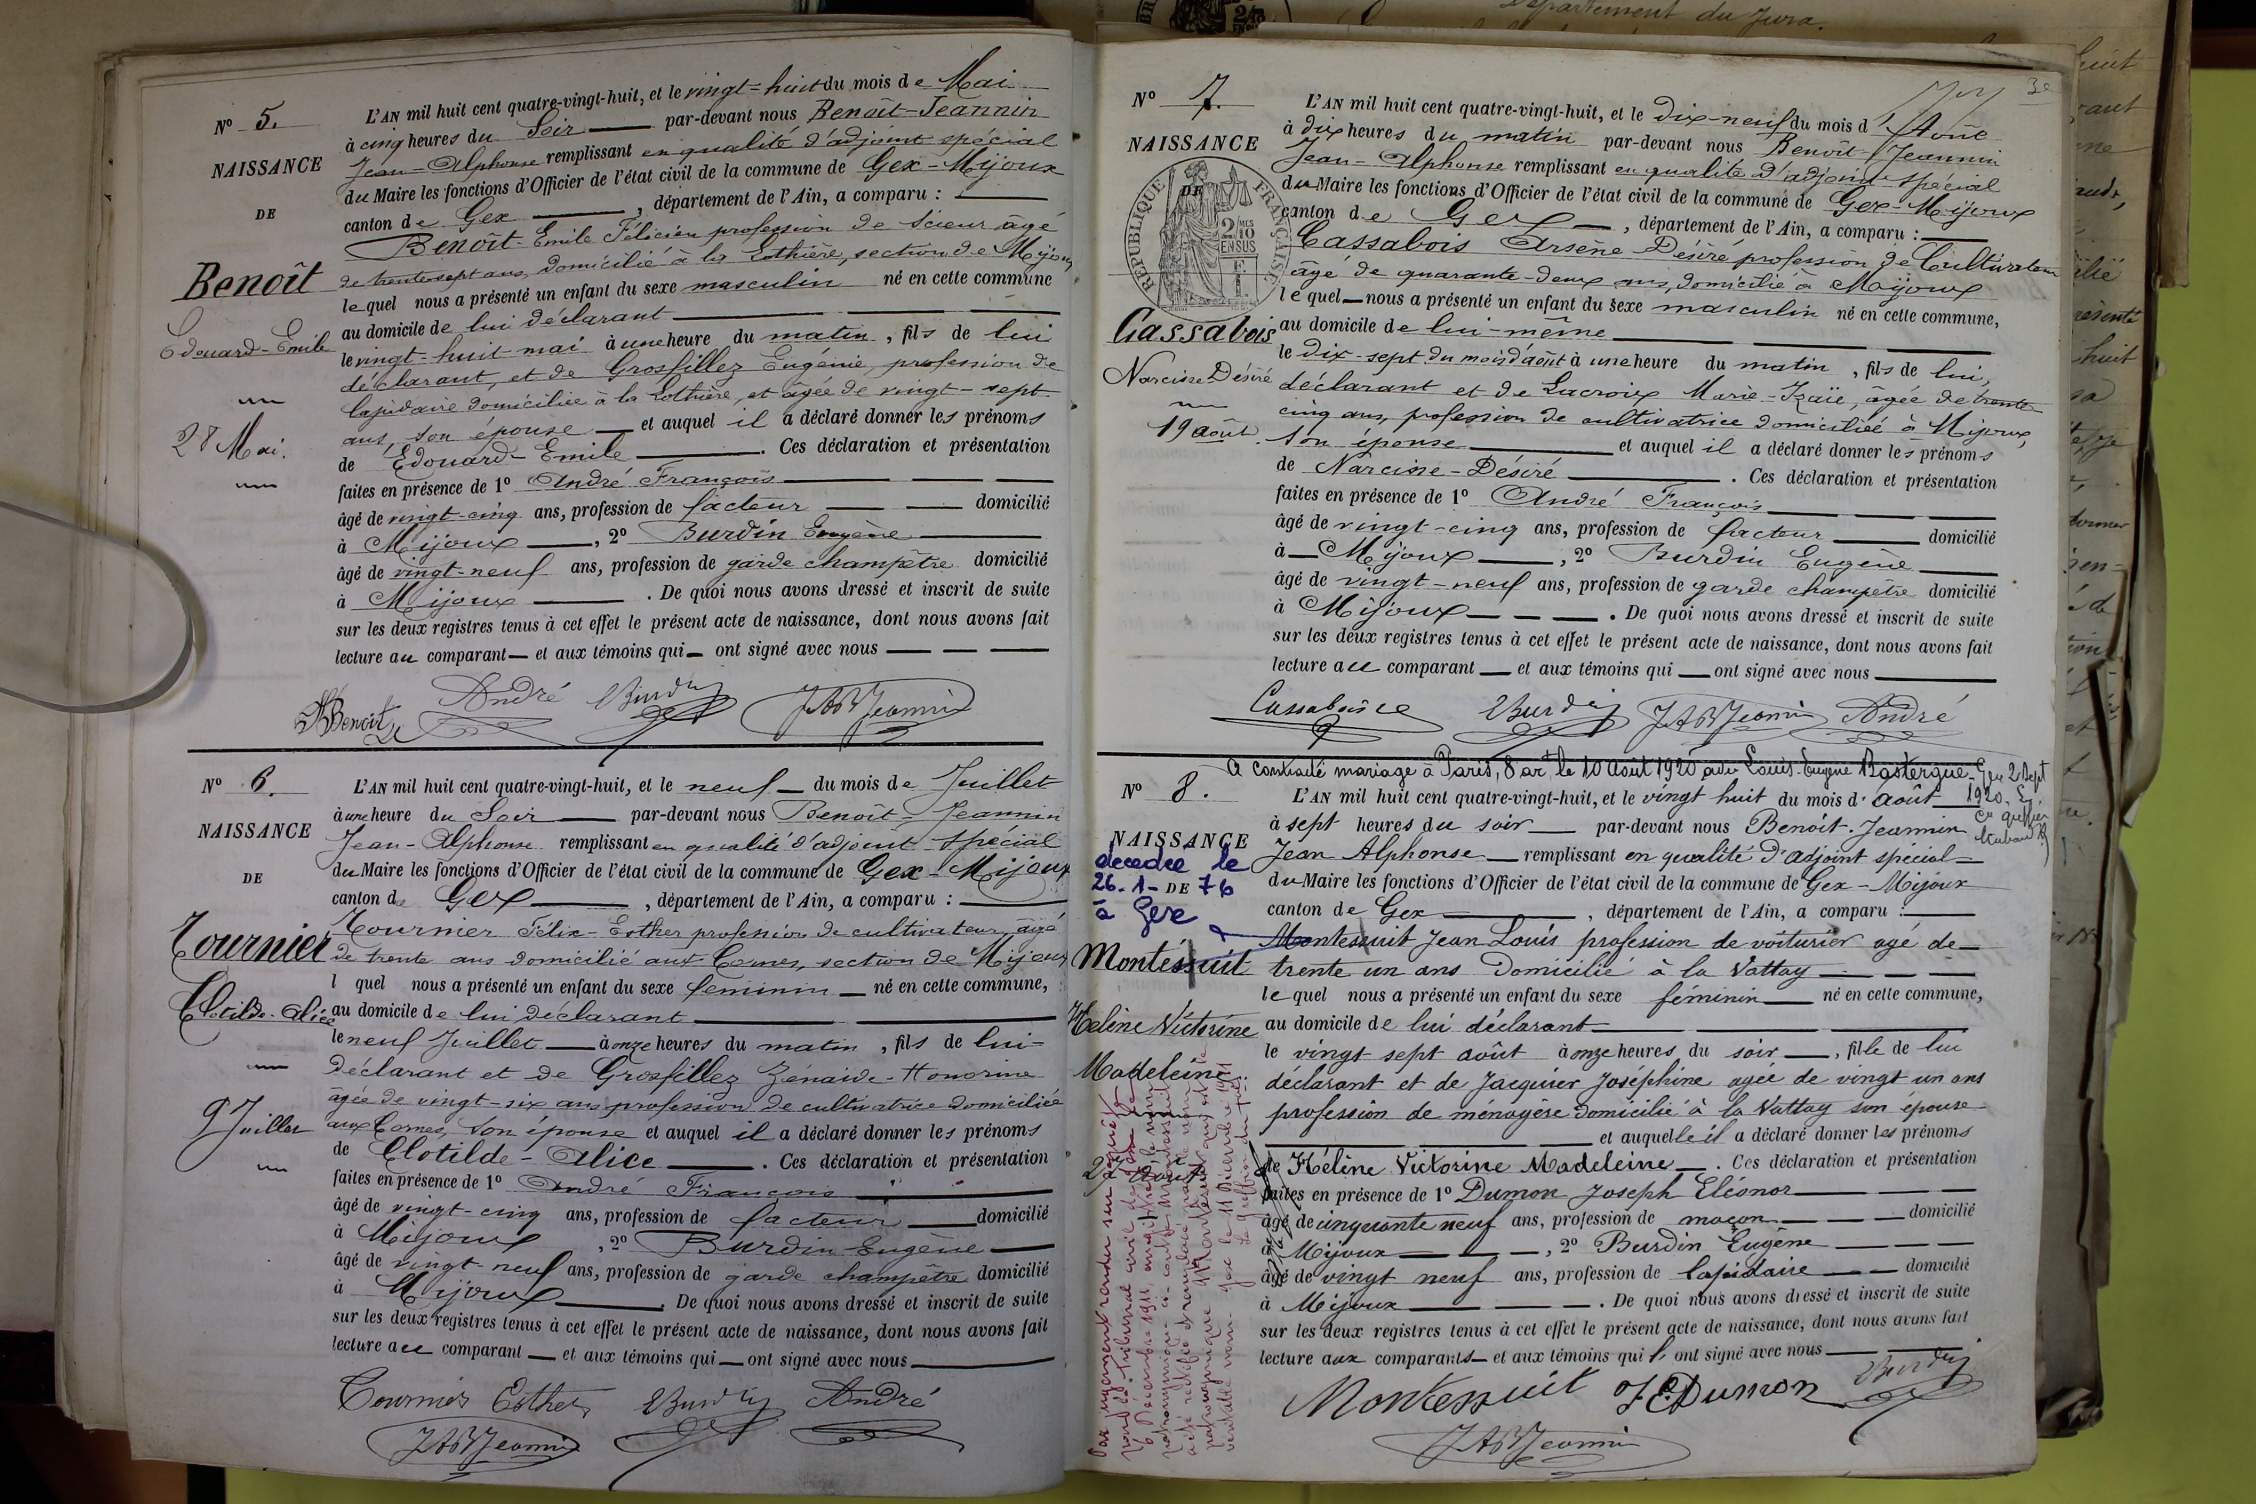 N° 5.
NAISSANCE
DE
Benoît
Edouard-Emile
28 Mai.
L'AN mil huit cent quatre-vingt-huit, et le vingt-huit du mois de Mai
à cinq heures du Soir par-devant nous Benoît-Jeannin
Jean-Alphonse remplissant en qualité d'adjoint spécial
du Maire les fonctions d'Officier de l'état civil de la commune de Gex-Mijoux
canton de Gex, département de l'Ain, a comparu :
Benoît-Emile Félicien profession de Scieur âgé
de trente sept ans, domicilié à la Lothière, section de Mijoux
lequel nous a présenté un enfant du sexe masculin né en cette commune
au domicile de lui déclarant
le vingt-huit mai à une heure du matin, fils de lui
déclarant, et de Grosfillez Eugénie, profession de
lapidaire domiciliée à la Lothière, et âgée de vingt-sept
ans, son épouse et auquel il a déclaré donner les prénoms
de Edouard-Emile. Ces déclaration et présentation
faites en présence de 1° André François
âgé de vingt-cinq ans, profession de facteur domicilié
à Mijoux, 2° Burdin Eugène
âgé de vingt-neuf ans, profession de garde champêtre domicilié
à Mijoux. De quoi nous avons dressé et inscrit de suite
sur les deux registres tenus à cet effet le présent acte de naissance, dont nous avons fait
lecture au comparant et aux témoins qui ont signé avec nous
Benoît André Burdin JAB Jeannin
N° 6.
NAISSANCE
DE
Tournier
Clotilde-Alice
9 Juillet
L'AN mil huit cent quatre-vingt-huit, et le neuf du mois de Juillet
à une heure du Soir par-devant nous Benoît-Jeannin
Jean-Alphonse remplissant en qualité d'adjoint spécial
du Maire les fonctions d'Officier de l'état civil de la commune de Gex-Mijoux
canton de Gex, département de l'Ain, a comparu :
Tournier Félix-Esther profession de cultivateur âgé
de trente ans domicilié aux Cernes, section de Mijoux
l quel nous a présenté un enfant du sexe féminin né en cette commune,
au domicile de lui déclarant
le neuf Juillet à onze heures du matin, fils de lui
déclarant et de Grosfillez Zénaïde-Honorine
âgée de vingt-six ans profession de cultivatrice domiciliée
aux Cernes, son épouse et auquel il a déclaré donner les prénoms
de Clotilde-Alice. Ces déclaration et présentation
faites en présence de 1° André François
âgé de vingt-cinq ans, profession de facteur domicilié
à Mijoux, 2° Burdin Eugène
âgé de vingt-neuf ans, profession de garde champêtre domicilié
à Mijoux. De quoi nous avons dressé et inscrit de suite
sur les deux registres tenus à cet effet le présent acte de naissance, dont nous avons fait
lecture au comparant et aux témoins qui ont signé avec nous
Tournier Esther Burdin André
JAB Jeannin
Département du Jura.
N° 7.
NAISSANCE
DE
RÉPUBLIQUE FRANÇAISE
2 MES
10
EN SUS
Cassabois
Narcisse-Désiré
19 août.
L'AN mil huit cent quatre-vingt-huit, et le dix-neuf du mois d'Août
à dix heures du matin par-devant nous Benoît-Jeannin
Jean-Alphonse remplissant en qualité d'adjoint spécial
du Maire les fonctions d'Officier de l'état civil de la commune de Gex-Mijoux
canton de Gex, département de l'Ain, a comparu :
Cassabois Arsène-Désiré profession de Cultivateur
âgé de quarante-deux ans, domicilié à Mijoux
lequel nous a présenté un enfant du sexe masculin né en cette commune,
au domicile de lui-même
le dix-sept du mois d'août à une heure du matin, fils de lui,
déclarant et de Lacroix Marie-Izaïe, âgée de trente-
cinq ans, profession de cultivatrice domiciliée à Mijoux,
son épouse et auquel il a déclaré donner les prénoms
de Narcisse-Désiré. Ces déclaration et présentation
faites en présence de 1° André François
âgé de vingt-cinq ans, profession de facteur domicilié
à Mijoux, 2° Burdin Eugène
âgé de vingt-neuf ans, profession de garde champêtre domicilié
à Mijoux. De quoi nous avons dressé et inscrit de suite
sur les deux registres tenus à cet effet le présent acte de naissance, dont nous avons fait
lecture au comparant et aux témoins qui ont signé avec nous
Cassabois Burdin JAB Jeannin André
A contracté mariage à Paris, 8 art le 10 Août 1920 avec Louis-Eugène Bastergue - Gex 2 Sept
1920.
N° 8.
NAISSANCE
DE
décédée le
26-1-76
à Gex
Montessuit
Hélène Victorine
Madeleine
août
L'AN mil huit cent quatre-vingt-huit, et le vingt huit du mois d'août
à sept heures du soir par-devant nous Benoît-Jeannin
Jean Alphonse remplissant en qualité d'adjoint spécial
du Maire les fonctions d'Officier de l'état civil de la commune de Gex-Mijoux
canton de Gex, département de l'Ain, a comparu :
Montessuit Jean Louis profession de voiturier agé de
trente un ans domicilié à la Vattay
lequel nous a présenté un enfant du sexe féminin né en cette commune,
au domicile de lui déclarant
le vingt sept août à onze heures du soir, fille de lui
déclarant et de Jacquier Joséphine agée de vingt un ans
profession de ménagère domicilié à la Vattay son épouse
et auquelle il a déclaré donner les prénoms
de Hélène Victorine Madeleine. Ces déclaration et présentation
faites en présence de 1° Dumon Joseph Eléonor
âgé de cinquante neuf ans, profession de maçon domicilié
à Mijoux, 2° Burdin Eugène
âgé de vingt neuf ans, profession de lapidaire domicilié
à Mijoux. De quoi nous avons dressé et inscrit de suite
sur les deux registres tenus à cet effet le présent acte de naissance, dont nous avons fait
lecture aux comparants et aux témoins qui ont signé avec nous
Montessuit JE Dumon Burdin
JAB Jeannin